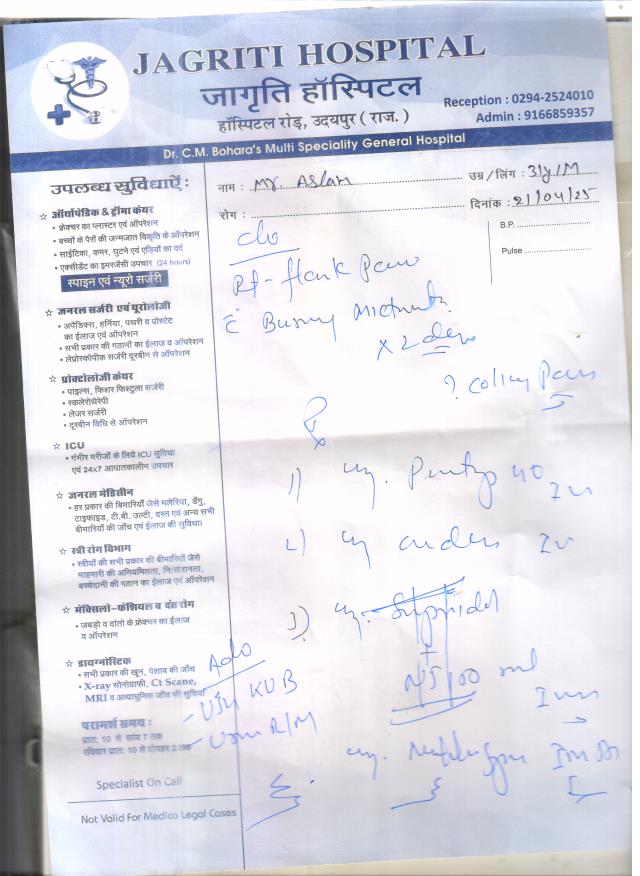 JAGRITI HOSPITAL
जागृति हॉस्पिटल
हॉस्पिटल रोड़, उदयपुर ( राज. )
Reception : 0294-2524010
Admin : 9166859357
Dr. C.M. Bohara's Multi Speciality General Hospital
उपलब्ध सुविधाऐं :
नाम : Mr. Aslam
उम्र / लिंग : 31y/M
रोग :
दिनांक : 21/04/25
B.P.
Pulse
☆ ऑर्थोपेडिक & ट्रॉमा केयर
• फ्रेक्चर का प्लास्टर एवं ऑपरेशन
• बच्चों के पैरों की जन्मजात विकृति के ऑपरेशन
• साईटिका, कमर, घुटने एवं एड़ियों का दर्द
• एक्सीडेंट का इमरजेंसी उपचार (24 hours)
स्पाइन एवं न्यूरो सर्जरी
☆ जनरल सर्जरी एवं यूरोलोजी
• अपेंडिक्स, हर्निया, पथरी व प्रोस्टेट
का ईलाज एवं ऑपरेशन
• सभी प्रकार की गठानों का ईलाज व ऑपरेशन
• लेप्रोस्कोपीक सर्जरी दूरबीन से ऑपरेशन
☆ प्रोक्टोलोजी केयर
• पाइल्स, फिशर फिश्टुला सर्जरी
• स्कलेरोथेरेपी
• लेजर सर्जरी
• दूरबीन विधि से ऑपरेशन
☆ ICU
• गंभीर मरीजों के लिये ICU सुविधा
एवं 24x7 आपातकालीन उपचार
☆ जनरल मेडिसीन
• हर प्रकार की बिमारियाँ जैसे मलेरिया, डेंगु,
टाइफाइड, टी.बी. उल्टी, दस्त एवं अन्य सभी
बीमारियों की जाँच एवं ईलाज की सुविधा।
☆ स्त्री रोग विभाग
• स्त्रीयों की सभी प्रकार की बीमारियाँ जैसे
माहमारी की अनियमितता, नि:संतानता,
बच्चेदानी की गठान का ईलाज एवं ऑपरेशन
☆ मेक्सिलो-फेशियल व दंत रोग
• जबड़ो व दांतो के फ्रेक्चर का ईलाज
व ऑपरेशन
☆ डायग्नोस्टिक
• सभी प्रकार की खून, पेशाब की जाँच
• X-ray सोनोग्राफी, Ct Scane,
MRI व अत्याधुनिक जाँच की सुविधा
परामर्श समय :
प्रात: 10 से सांय 7 तक
रविवार प्रात: 10 से दोपहर 2 तक
Specialist On Call
Not Valid For Medico Legal Cases
c/o
Rt - flank Pain
c̄ Burning Micturit.
x 2 days
? colicky Pain
Rx
1) 40
2)
3)
+
NS 100 ml
Adv
- USG KUB
- Urine R/M